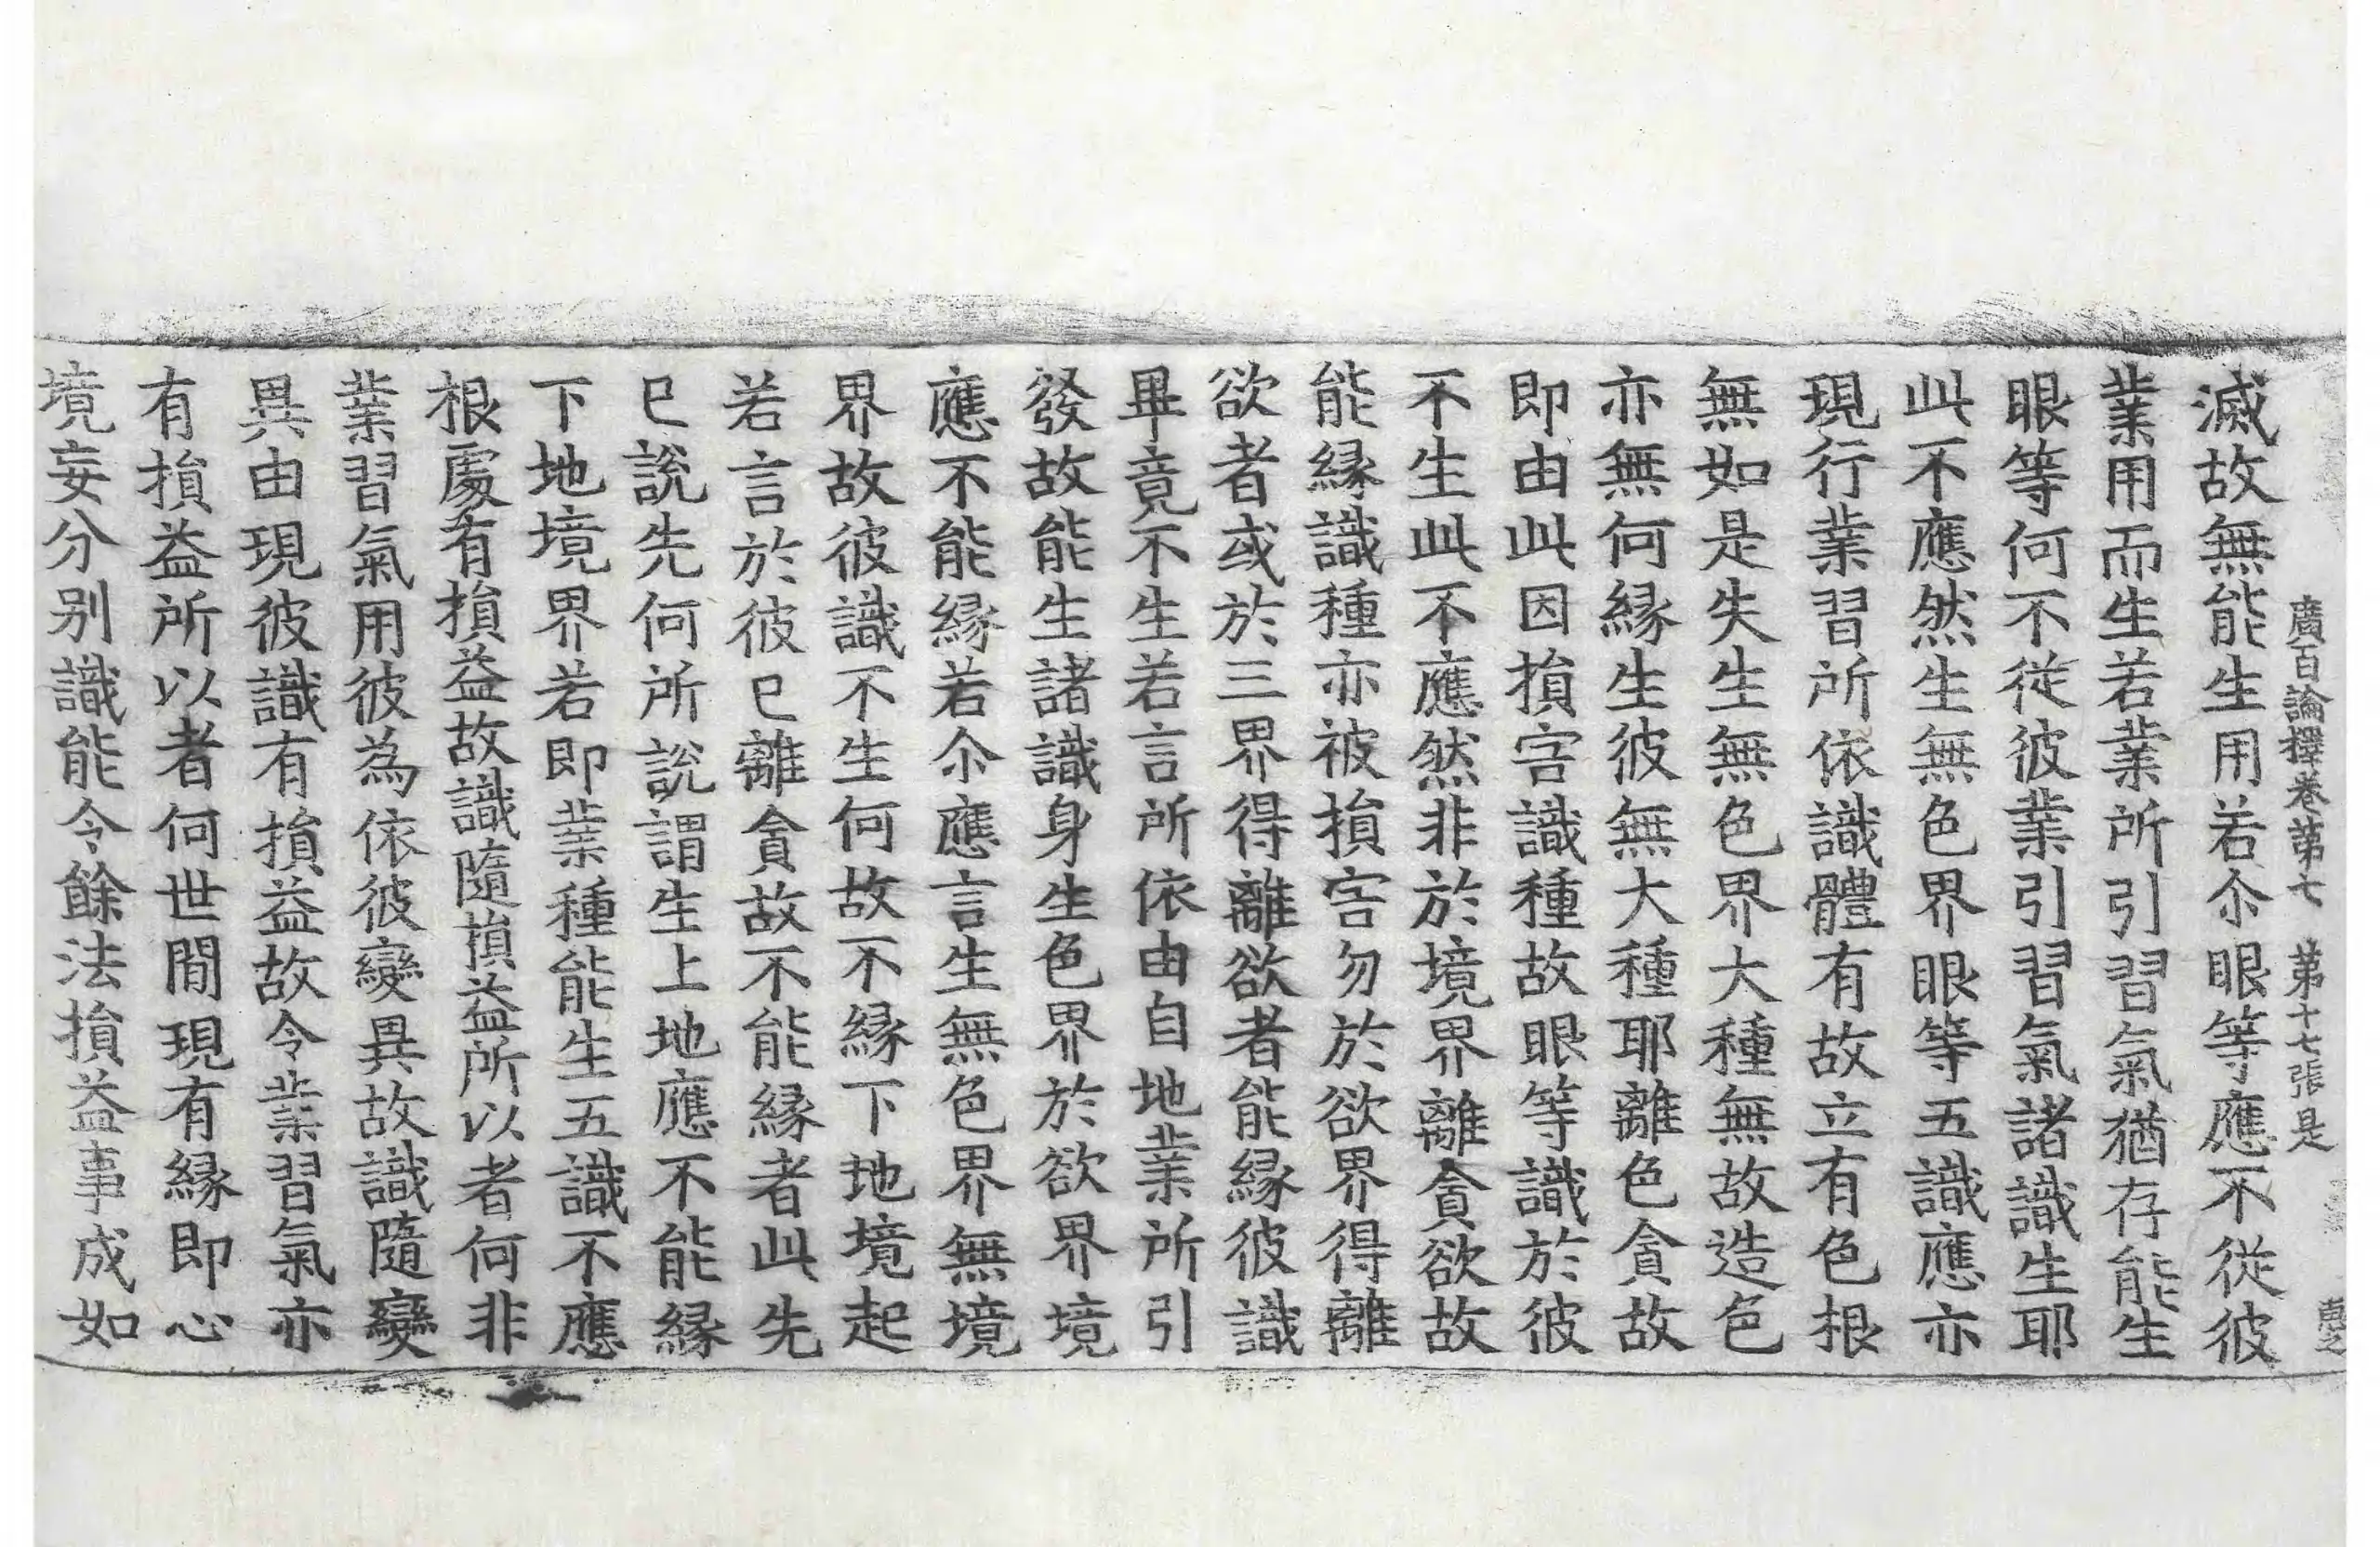 廣百論擇卷第七 第十七張 是
滅故無能生用若尒眼等應不從彼
業用而生若業所引習氣猶存能生
眼等何不從彼業引習氣諸識生耶
此不應然生無色界眼等五識應亦
現行業習所依識體有故立有色根
無如是失生無色界大種無故造色
亦無何緣生彼無大種耶離色貪故
即由此因損害識種故眼等識於彼
不生此不應然非於境界離貪欲故
能緣識種亦被損害勿於欲界得離
欲者或於三界得離欲者能緣彼識
畢竟不生若言所依由自地業所引
發故能生諸識身生色界於欲界境
應不能緣若尒應言生無色界無境
界故彼識不生何故不緣下地境起
若言於彼已離貪故不能緣者此先
已說先何所說謂生上地應不能緣
下地境界若即業種能生五識不應
根處有損益故識隨損益所以者何非
業習氣用彼為依彼變異故識隨變
異由現彼識有損益故令業習氣亦
有損益所以者何世間現有緣即心
境妄分別識能令餘法損益事成如